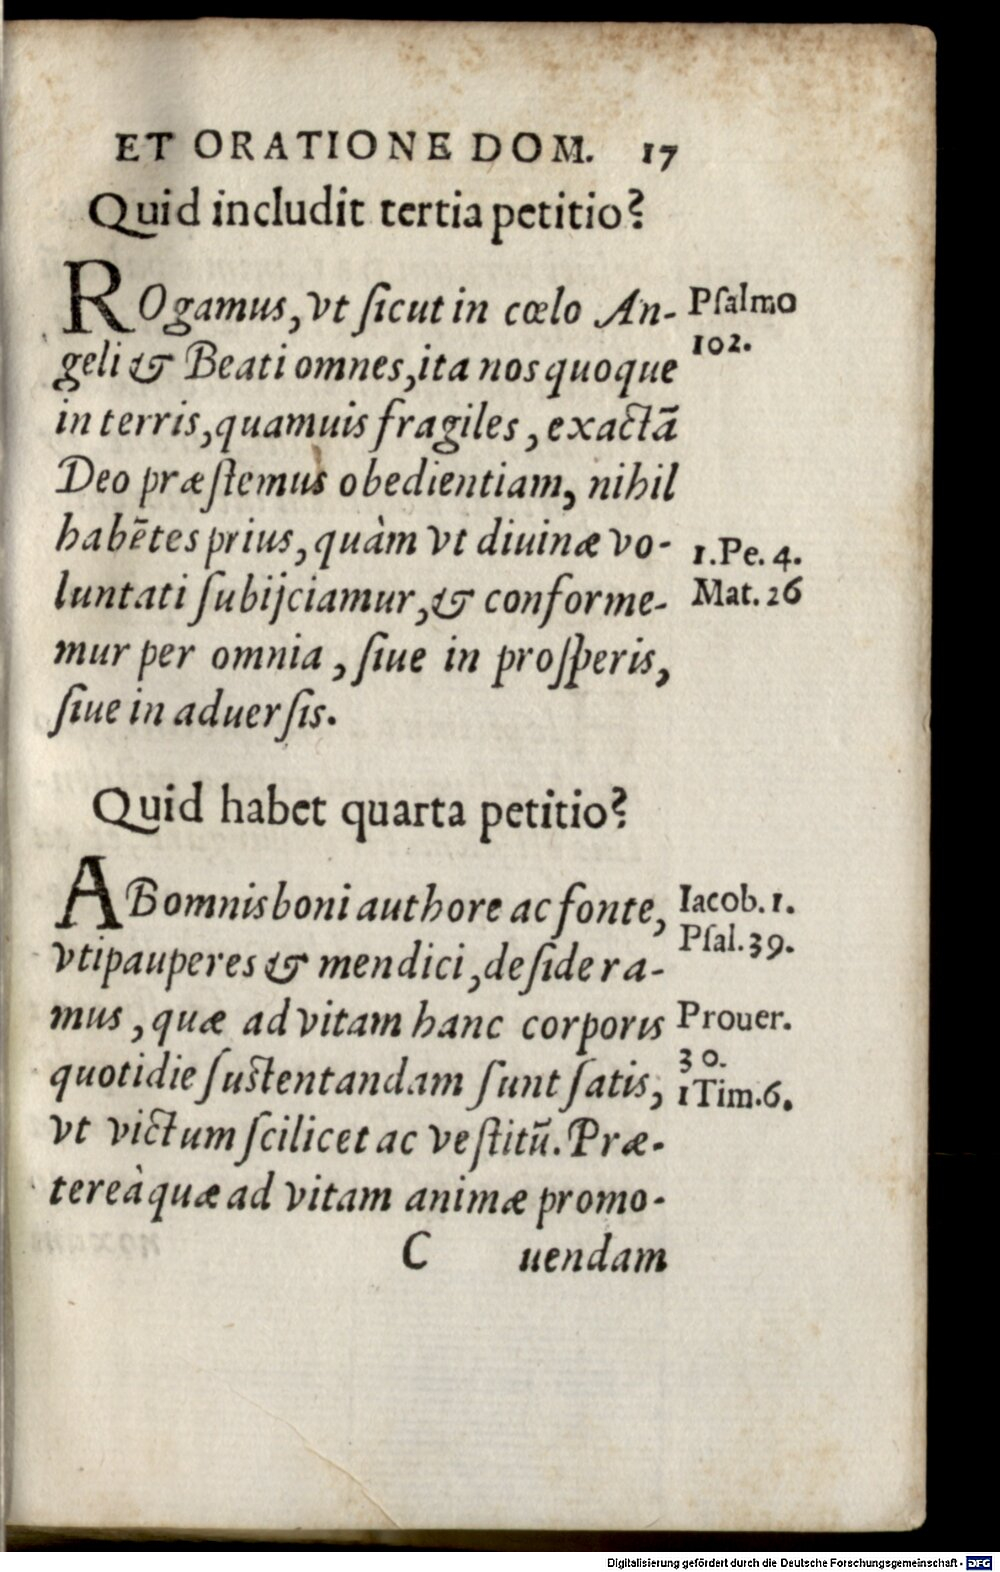 ET ORATIONE DOM. 17
Quid includit tertia petitio?
ROgamus, vt ſicut in cœlo An-
geli & Beati omnes, ita nos quoque
in terris, quamuis fragiles, exactā
Deo præſtemus obedientiam, nihil
habētes prius, quàm vt diuinæ vo-
luntati ſubijciamur, & conforme-
mur per omnia, ſiue in proſperis,
ſiue in aduerſis.
Psalmo
102.
1.Pe. 4.
Mat. 26
Quid habet quarta petitio?
AB omnis boni authore ac fonte,
vti pauperes & mendici, deſidera-
mus, quæ ad vitam hanc corporis
quotidie ſuſtentandam ſunt ſatis,
vt victum ſcilicet ac veſtitū. Præ-
tereà quæ ad vitam animæ promo-
Iacob. 1.
Pſal. 39.
Prouer.
30.
1 Tim. 6.
C uendam
Digitalisierung gefördert durch die Deutsche Forschungsgemeinschaft - DFG